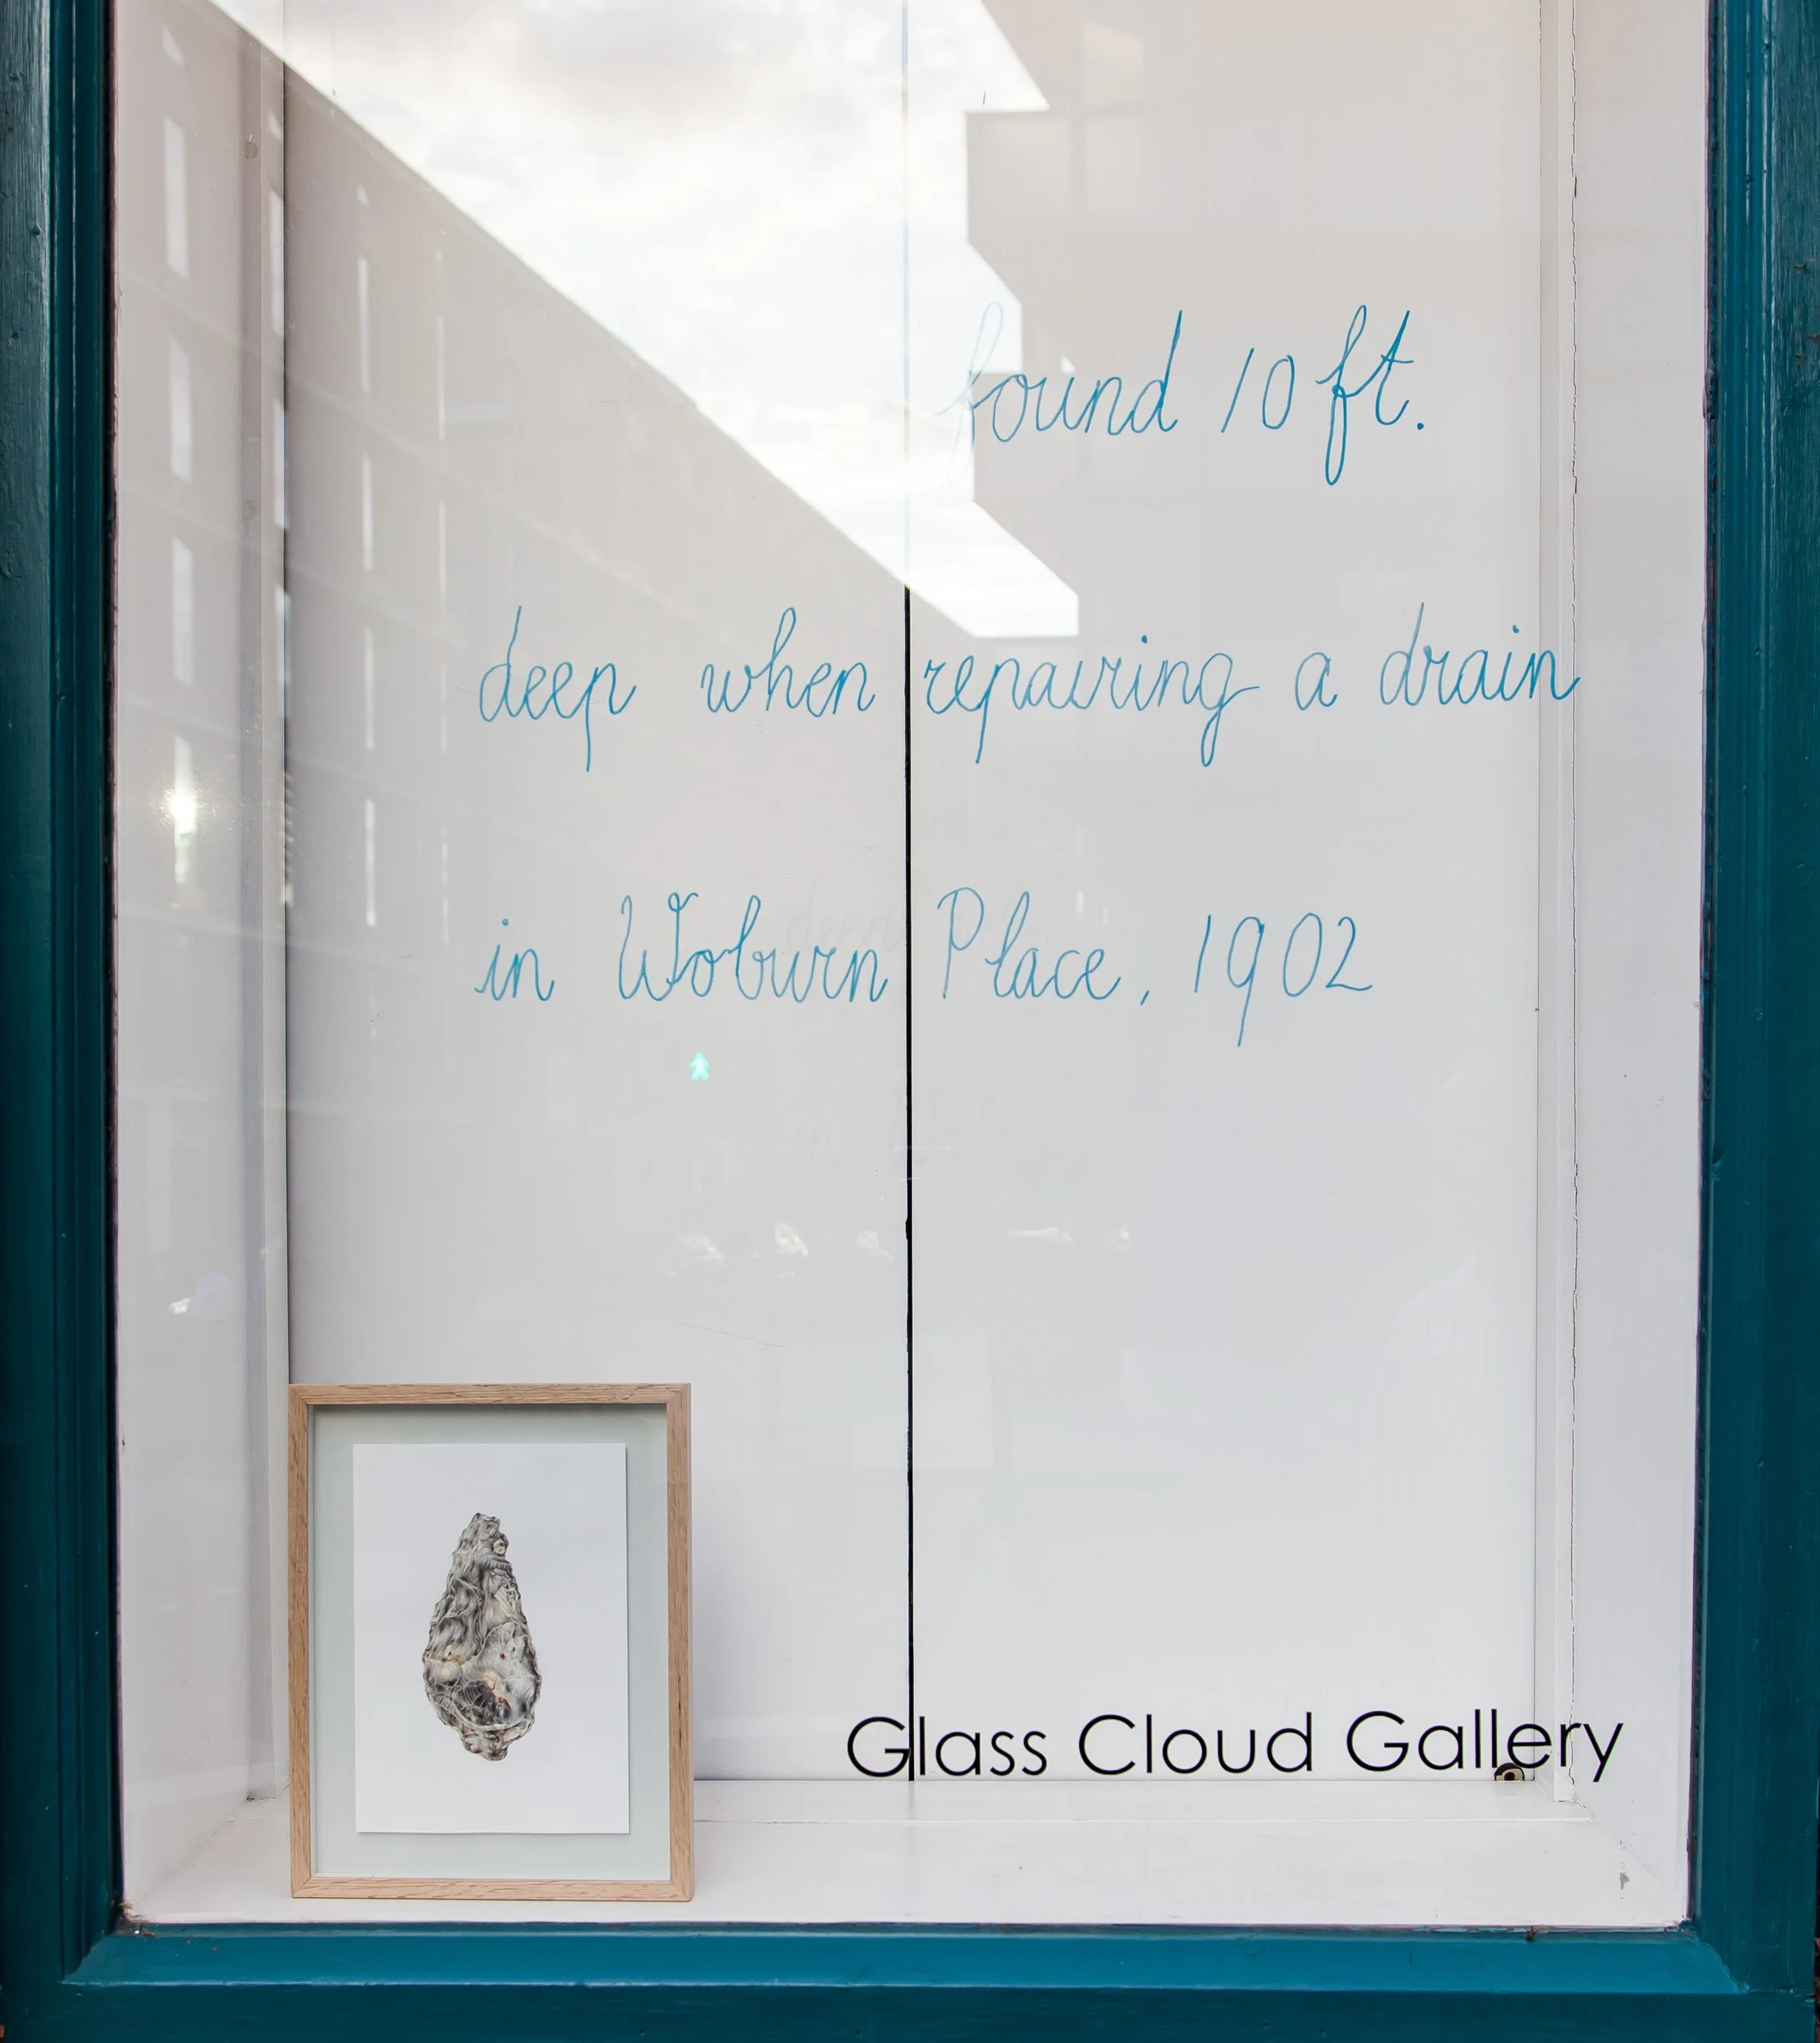 found 10 ft.
deep when repairing a drain
in Woburn Place, 1902
Glass Cloud Gallery